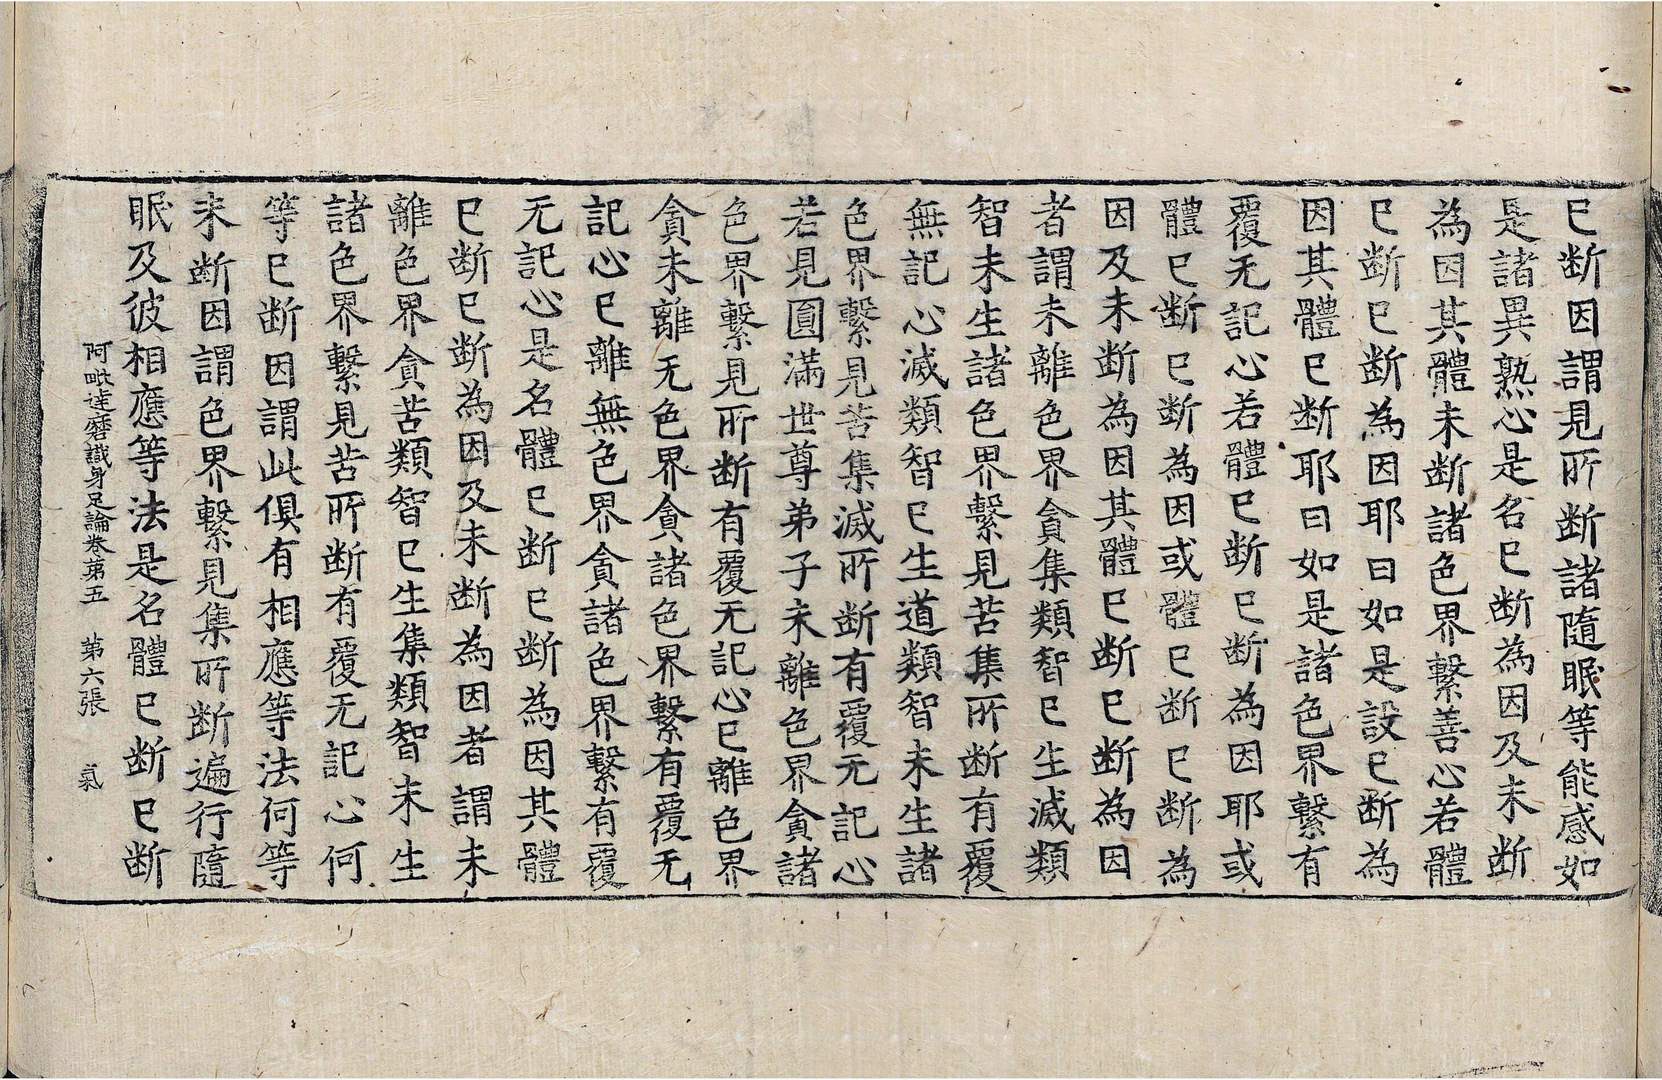 已断因謂見所断諸隨眠等能感如
是諸異熟心是名已断為因及未断
為因其體未断諸色界繫善心若體
已断已断為因耶曰如是設已断為
因其體已断耶曰如是諸色界繫有
覆无記心若體已断已断為因耶或
體已断已断為因或體已断已断為
因及未断為因其體已断已断為因
者謂未離色界貪集類智已生滅類
智未生諸色界繫見苦集所断有覆
無記心滅類智已生道類智未生諸
色界繫見苦集滅所断有覆无記心
若見圓滿世尊弟子未離色界貪諸
色界繫見所断有覆无記心已離色界
貪未離无色界貪諸色界繫有覆无
記心已離無色界貪諸色界繫有覆
无記心是名體已断已断為因其體
已断已断為因及未断為因者謂未
離色界貪苦類智已生集類智未生
諸色界繫見苦所断有覆无記心何
等已断因謂此俱有相應等法何等
未断因謂色界繫見集所断遍行隨
眠及彼相應等法是名體已断已断
阿毗達磨識身足論卷第五 第六張 氣